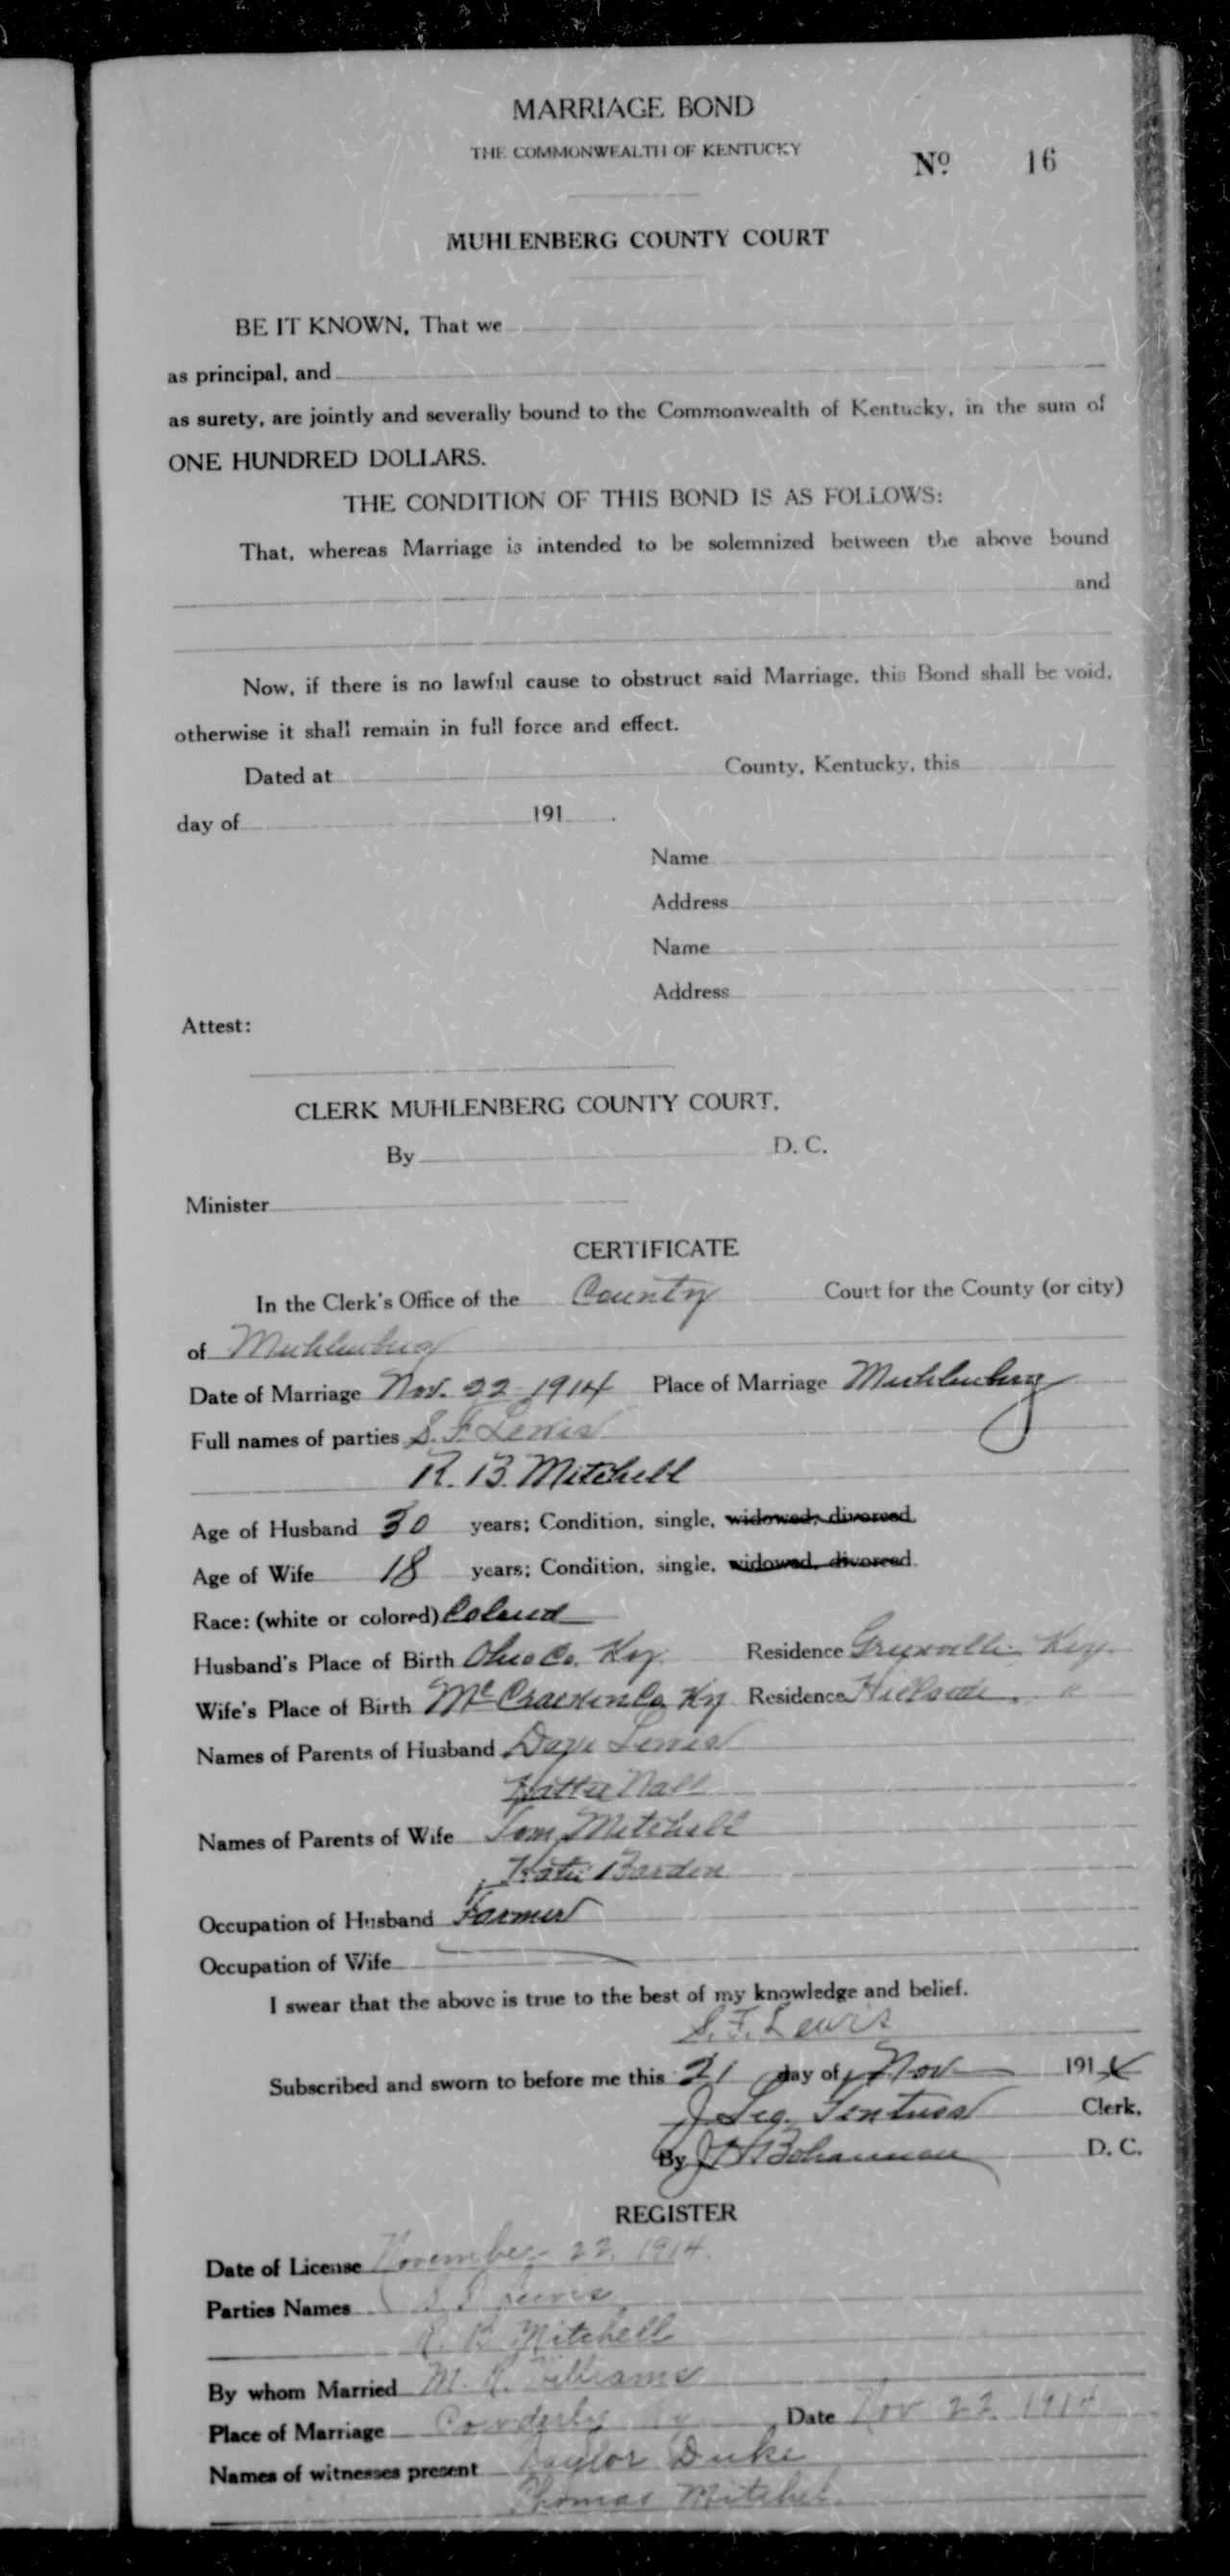 MARRIAGE BOND
THE COMMONWEALTH OF KENTUCKY
Nº 16
MUHLENBERG COUNTY COURT
BE IT KNOWN, That we
as principal, and
as surety, are jointly and severally bound to the Commonwealth of Kentucky, in the sum of
ONE HUNDRED DOLLARS.
THE CONDITION OF THIS BOND IS AS FOLLOWS:
That, whereas Marriage is intended to be solemnized between the above bound
and
Now, if there is no lawful cause to obstruct said Marriage, this Bond shall be void,
otherwise it shall remain in full force and effect.
Dated at County, Kentucky, this
day of 191 .
Name
Address
Name
Address
Attest:
CLERK MUHLENBERG COUNTY COURT.
By D. C.
Minister
CERTIFICATE
In the Clerk's Office of the County Court for the County (or city)
of Muhlenberg
Date of Marriage Nov. 22 1914 Place of Marriage Muhlenberg
Full names of parties S. F. Lewis
R. B. Mitchell
Age of Husband 30 years; Condition, single, widowed, divorced.
Age of Wife 18 years; Condition, single, widowed, divorced.
Race: (white or colored) Colored
Husband's Place of Birth Ohio Co. Ky. Residence Greenville Ky.
Wife's Place of Birth McCracken Co Ky Residence "
Names of Parents of Husband Dave Lewis
Nall
Names of Parents of Wife Tom Mitchell
Katie
Occupation of Husband Farmer
Occupation of Wife
I swear that the above is true to the best of my knowledge and belief.
S. F. Lewis
Subscribed and sworn to before me this 21 day of Nov 1914
J. Clerk.
By Bohannon D. C.
REGISTER
Date of License November 22, 1914.
Parties Names S. F. Lewis
R. B. Mitchell
By whom Married M. Williams
Place of Marriage Powderly Ky Date Nov 22 1914
Names of witnesses present Taylor Duke
Thomas Mitchel